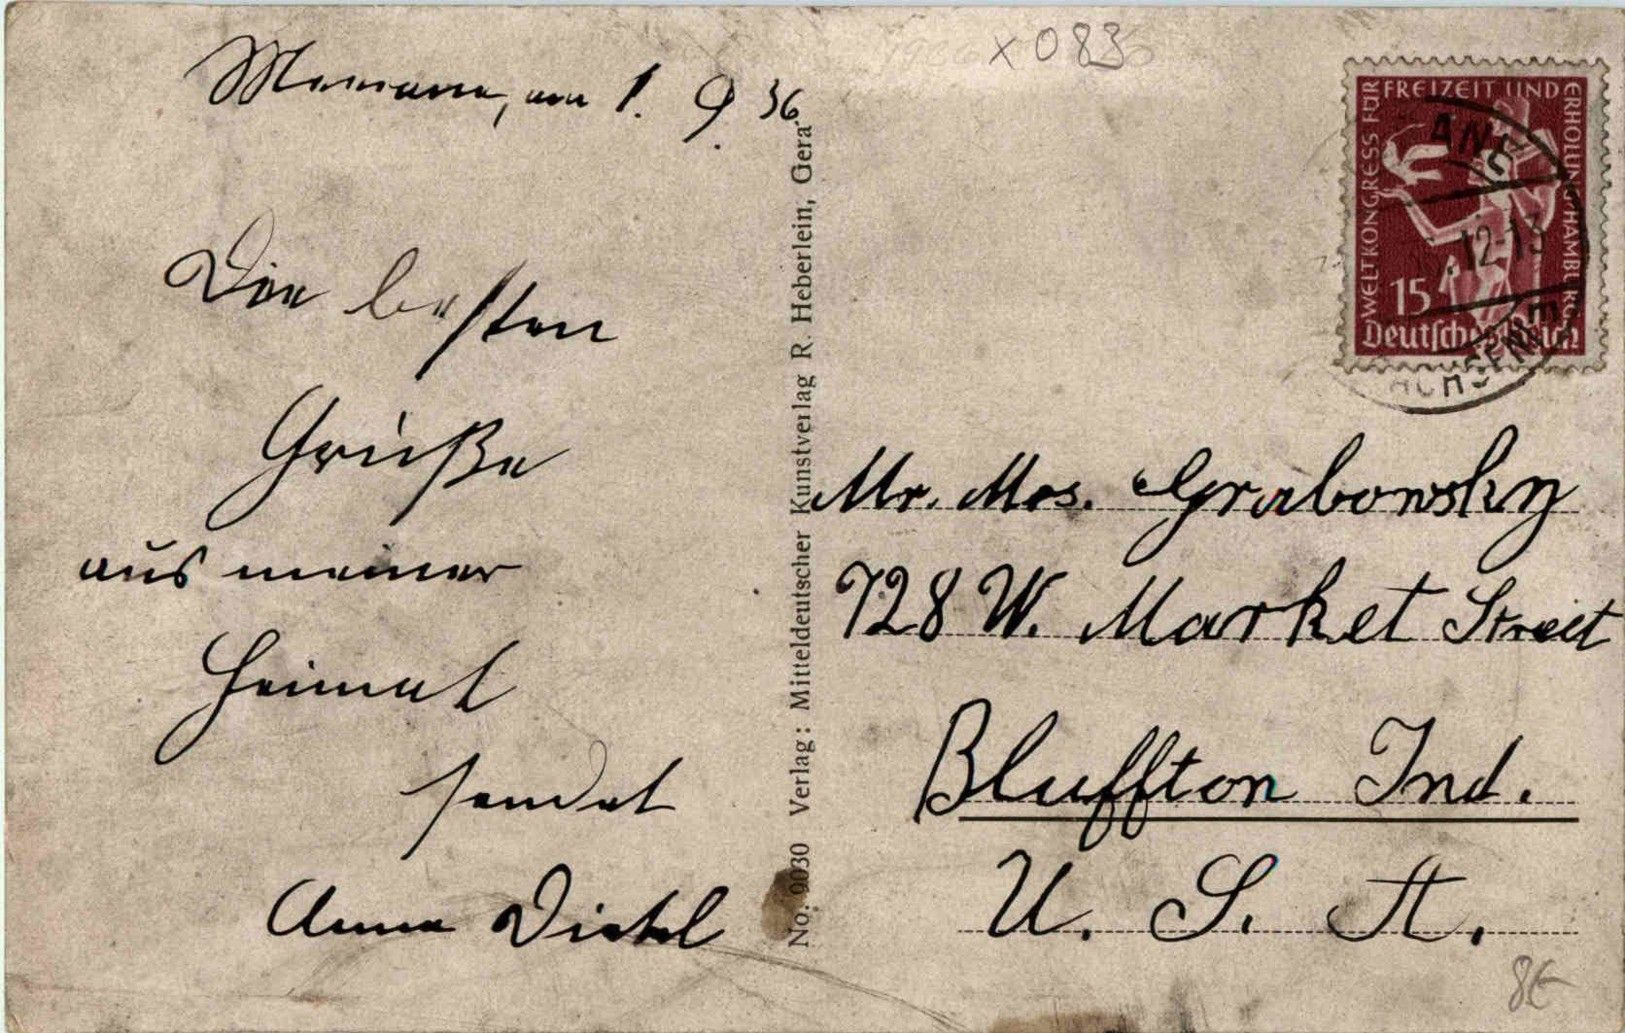 Meerane, am 1. 9. 36.
Die besten
Grüße
aus meiner
Heimat
sendet
Anna Dietel
No. 9030 Verlag: Mitteldeutscher Kunstverlag R. Heberlein, Gera
x 083
WELTKONGRESS FÜR FREIZEIT UND ERHOLUNG HAMBURG
15
Deutsches Reich
12-13
Mr. Mrs. Grabowsky
728 W. Market Street
Bluffton Ind.
U. S. A.
8€